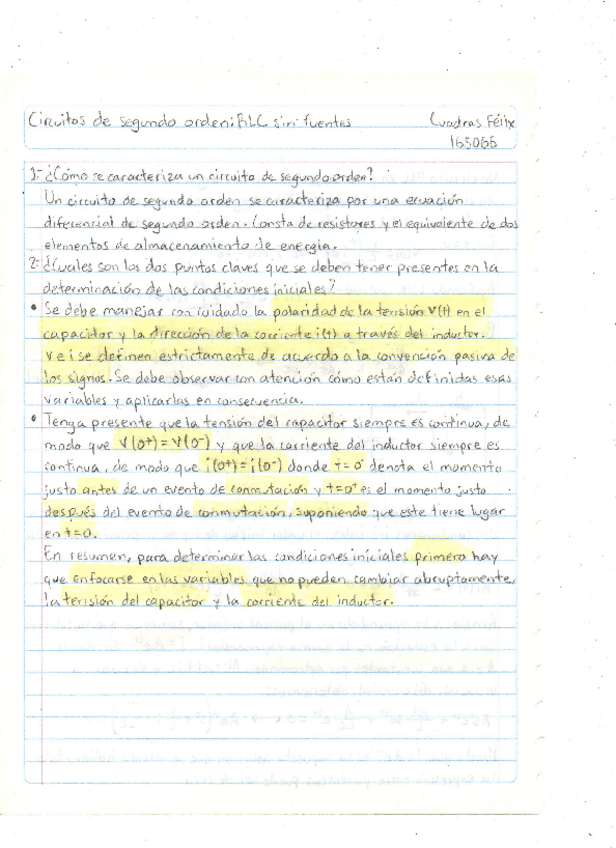 Circuitos de segundo orden: RLC sin fuentes
Cuadras Félix
165066
1.- ¿Cómo se caracteriza un circuito de segundo orden?
Un circuito de segundo orden se caracteriza por una ecuación
diferencial de segundo orden. Consta de resistores y el equivalente de dos
elementos de almacenamiento de energía.
2.- ¿Cuales son los dos puntos claves que se deben tener presentes en la
determinación de las condiciones iniciales?
• Se debe manejar con cuidado la polaridad de la tensión v(t) en el
capacitor y la dirección de la corriente i(t) a través del inductor.
v e i se definen estrictamente de acuerdo a la convención pasiva de
los signos. Se debe observar con atención cómo están definidas esas
variables y aplicarlas en consecuencia.
• Tenga presente que la tensión del capacitor siempre es continua, de
modo que v(0⁺) = v(0⁻) y que la corriente del inductor siempre es
continua, de modo que i(0⁺) = i(0⁻) donde t = 0⁻ denota el momento
justo antes de un evento de conmutación y t = 0⁺ es el momento justo
después del evento de conmutación, suponiendo que este tiene lugar
en t = 0.
En resumen, para determinar las condiciones iniciales primero hay
que enfocarse en las variables que no pueden cambiar abruptamente,
la tensión del capacitor y la corriente del inductor.